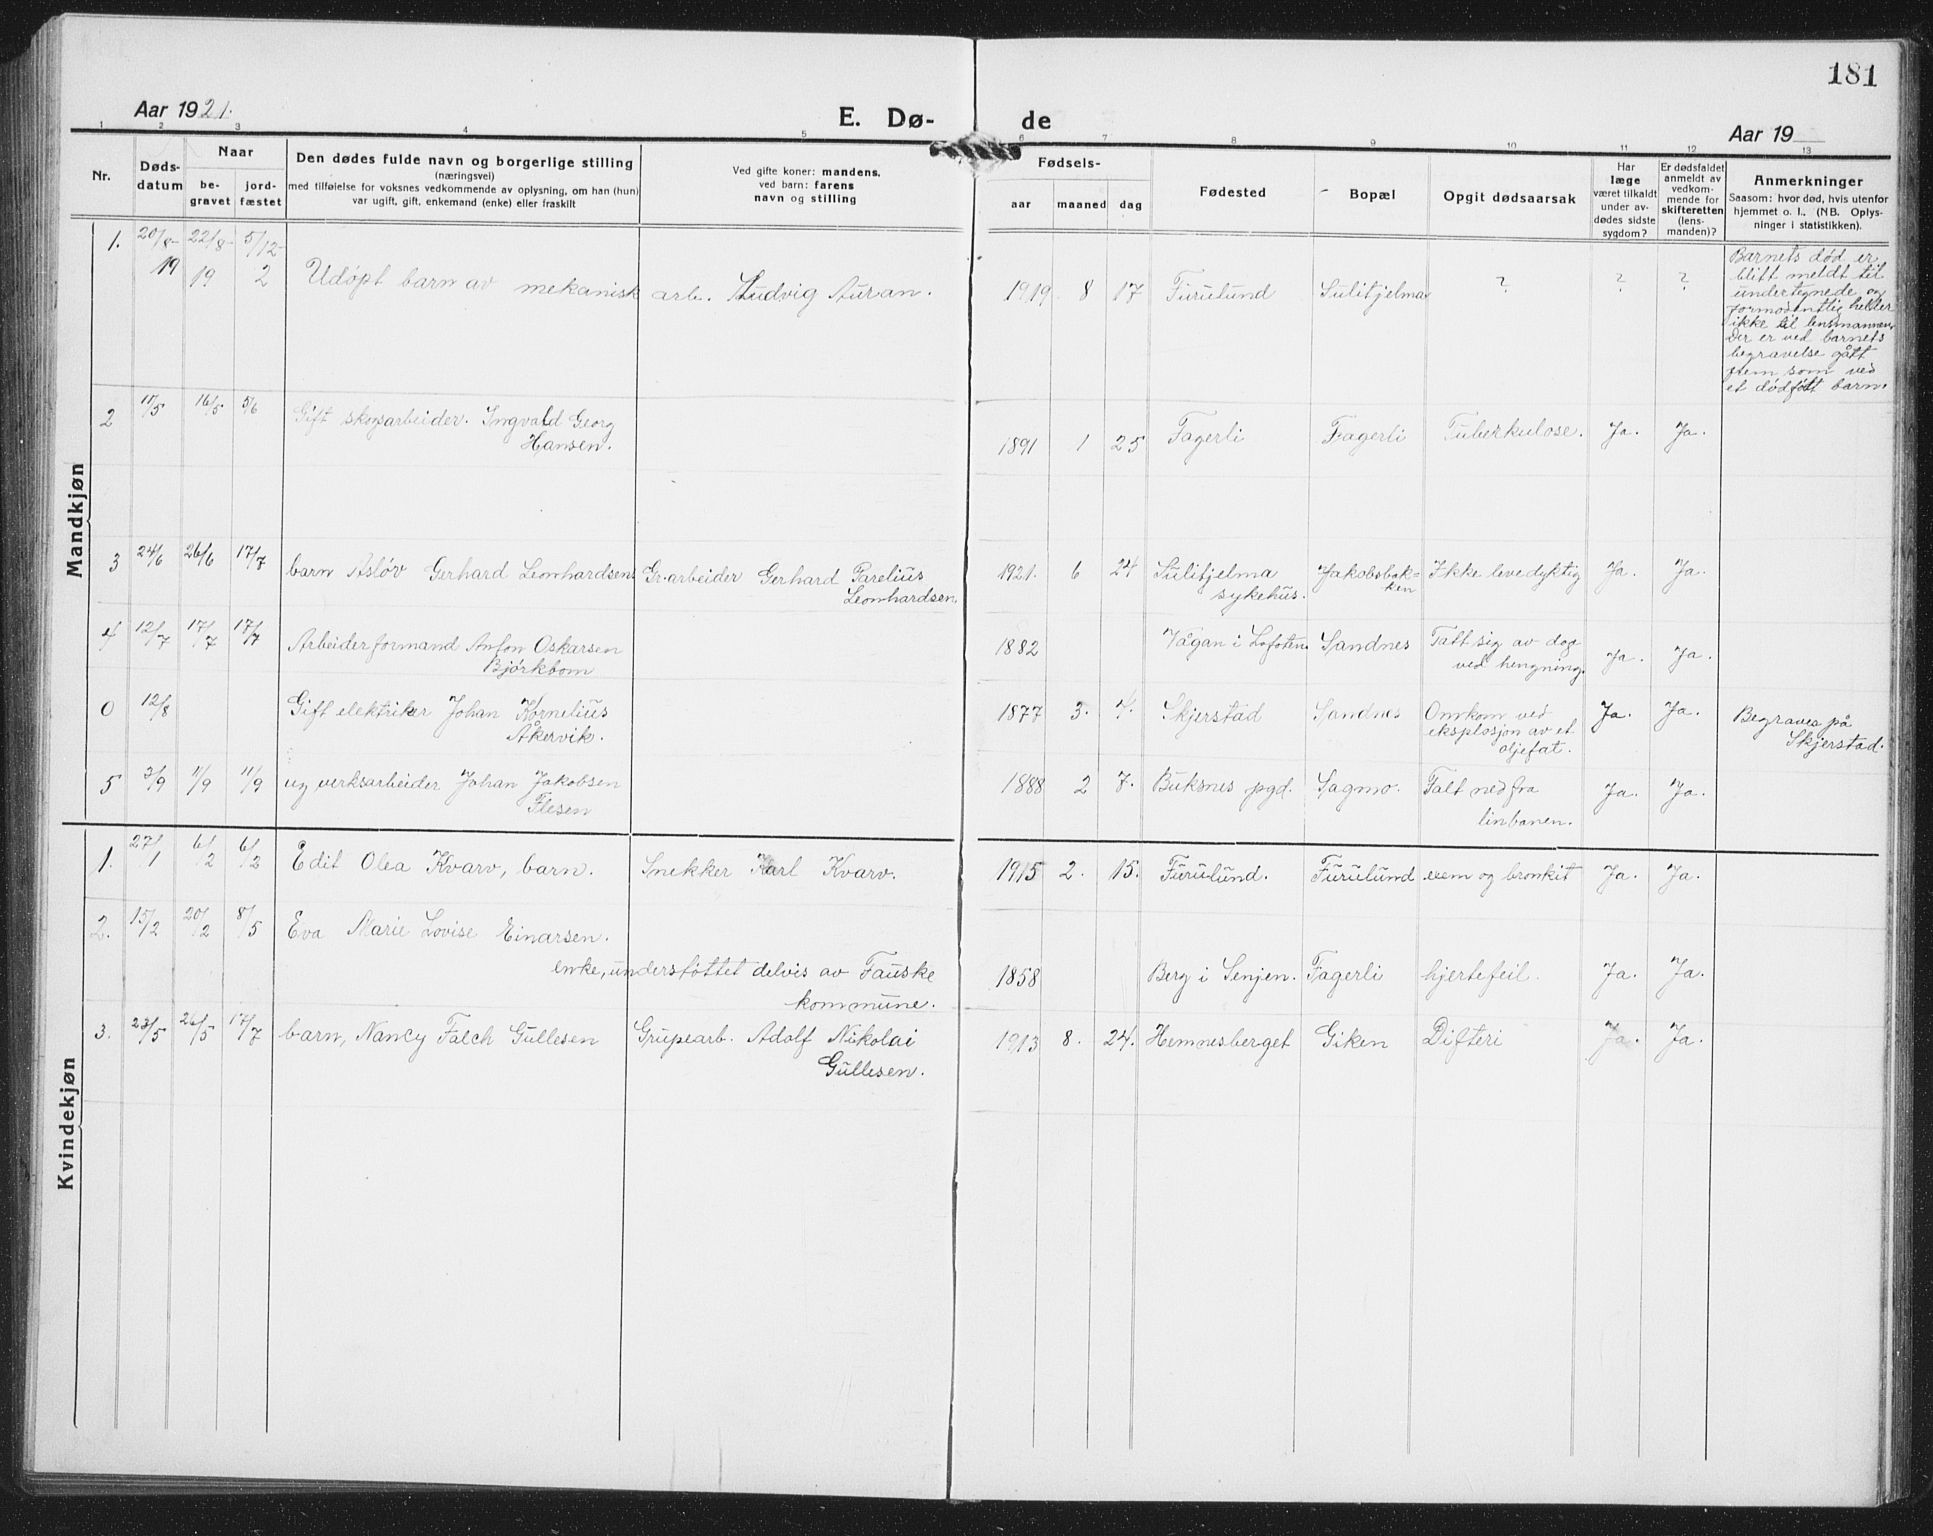 181
Aar 1921.
E. Dø-
de
Aar 19
1 2 3 4 5 6 7 8 9 10 11 12 13
Nr.
Døds-
datum
Naar
be-
gravet
jord-
fæstet
Den dødes fulde navn og borgerlige stilling
(næringsvei)
med tilføielse for voksnes vedkommende av oplysning, om han (hun)
var ugift, gift, enkemand (enke) eller fraskilt
Ved gifte koner: mandens,
ved barn: farens
navn og stilling
Fødsels-
aar
maaned
dag
Fødested
Bopæl
Opgit dødsaarsak
Har
læge
været tilkaldt
under av-
dødes sidste
sygdom?
Er dødsfaldet
anmeldt av
vedkom-
mende for
skifteretten
(lens-
manden)?
Anmerkninger
Saasom: hvor død, hvis utenfor
hjemmet o. l., (NB. Oplys-
ninger i statistikken).
Mandkjøn
1. 20/8- 19 22/8- 19 5/12- 2 Udøpt barn av mekanisk arb. Ludvig Auran. 1919 8 17 Furulund Sulitjelma ? ? ?
Barnets død er
blitt meldt til
undertegnede og
formodentlig heller
ikke til lensmannen.
Der er ved barnets
begravelse gått
frem som ved
et dødfött barn.
2 11/5 16/5 5/6 Gift skogsarbeider. Ingvald Georg
Hansen. 1891 1 25 Fagerli Fagerli Tuberkulose. Ja. Ja.
3 24/6 26/6 17/7 barn Asløv Gerhard Leonhardsen Gr.arbeider Gerhard Parelius
Leonhardsen. 1921. 6 24 Sulitjelma
sykehus. Jakobsbak-
ken Ikke levedyktig Ja. Ja.
4 12/7 17/7 17/7 Arbeiderformand Anton Oskarsen
Bjørkbom 1882 Vågan i Lofoten Sandnes Tatt sig av dage
ved hengning. Ja. Ja.
0 12/8 Gift elektriker Johan Kornelius
Åkervik. 1877 3. 4. Skjerstad Sandnes Omkom ved
eksplosjon av et
oljefat. Ja. Ja. Begraves på
Skjerstad.
5 3/9 11/9 11/9 ug verksarbeider Johan Jakobsen
Flesen 1888 2 7. Buksnes pgd. Sagmo. Falt ned fra
linbanen. Ja. Ja.
Kvindekjøn
1. 27/1 6/2 6/2 Edit Olea Kvarv, barn. Snekker Karl Kvarv. 1915 2. 15. Furulund. Furulund og bronkit Ja. Ja.
2. 15/2 20/2 8/5 Eva Marie Lovise Einarsen.
enke, understøttet delvis av Fauske
kommune. 1858 Berg i Senjen. Fagerli hjertefeil. Ja. Ja.
3. 23/5 26/5 17/7 barn, Nancy Falch Gullesen Grupearb. Adolf Nikolai
Gullesen. 1913 8. 24. Hemnesberget Giken Difteri Ja. Ja.